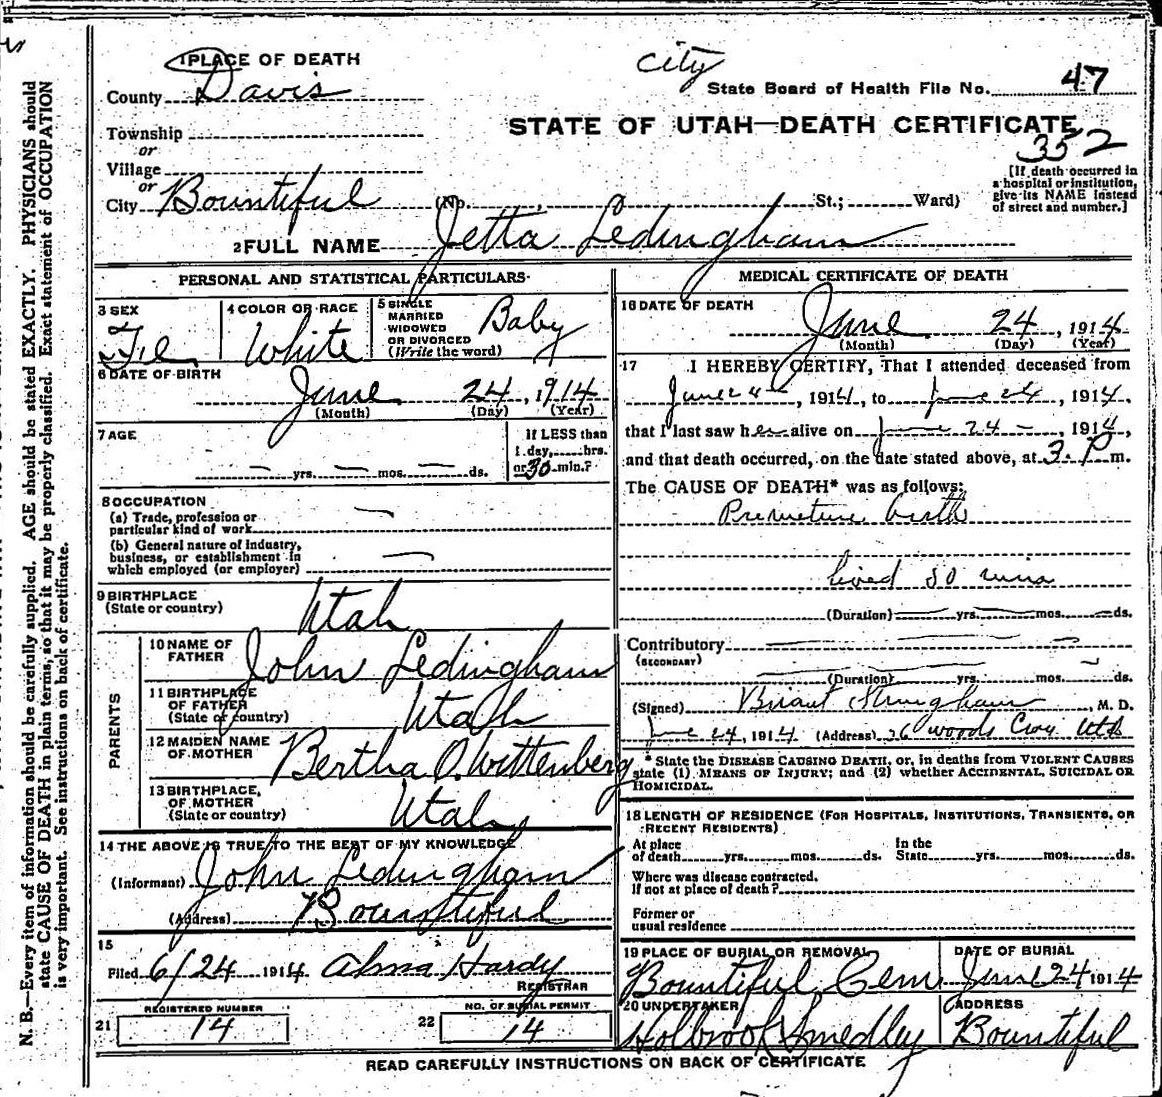 N. B.—Every item of information should be carefully supplied. AGE should be stated EXACTLY. PHYSICIANS should
state CAUSE OF DEATH in plain terms, so that it may be properly classified. Exact statement of OCCUPATION
is very important. See instructions on back of certificate.
1 PLACE OF DEATH
County Davis
Township
or
Village
or
City Bountiful (No. , St.; Ward)
city
State Board of Health File No. 47
STATE OF UTAH—DEATH CERTIFICATE
352
[If death occurred in
a hospital or institution,
give its NAME instead
of street and number.]
2 FULL NAME Jetta Ledingham
PERSONAL AND STATISTICAL PARTICULARS
3 SEX
4 COLOR OR RACE White
5 SINGLE
MARRIED
WIDOWED
OR DIVORCED
(Write the word) Baby
6 DATE OF BIRTH
June 24, 1914
(Month) (Day) (Year)
7 AGE
— yrs. — mos. — ds.
If LESS than
1 day, hrs.
or 30 min.?
8 OCCUPATION
(a) Trade, profession or
particular kind of work —
(b) General nature of industry,
business, or establishment in
which employed (or employer) —
9 BIRTHPLACE
(State or country) Utah
PARENTS
10 NAME OF
FATHER John Ledingham
11 BIRTHPLACE
OF FATHER
(State or country) Utah
12 MAIDEN NAME
OF MOTHER Bertha O. Wittenberg
13 BIRTHPLACE
OF MOTHER
(State or country) Utah
14 THE ABOVE IS TRUE TO THE BEST OF MY KNOWLEDGE
(Informant) John Ledingham
(Address) Bountiful
15
Filed 6/24 1914 Alma Hardy
REGISTRAR
REGISTERED NUMBER
21 14
NO. OF BURIAL PERMIT
22 14
MEDICAL CERTIFICATE OF DEATH
16 DATE OF DEATH
June 24, 1914
(Month) (Day) (Year)
17 I HEREBY CERTIFY, That I attended deceased from
June 24, 1914, to June 24, 1914,
that I last saw her alive on June 24, 1914,
and that death occurred, on the date stated above, at 3 P m.
The CAUSE OF DEATH* was as follows:
Premeture birth
lived 30 mins
(Duration) — yrs. — mos. — ds.
Contributory —
(SECONDARY)
(Duration) yrs. mos. ds.
(Signed) Briant Stringham, M. D.
June 24, 1914 (Address) Woods Cross Utah
* State the DISEASE CAUSING DEATH, or, in deaths from VIOLENT CAUSES
state (1) MEANS OF INJURY; and (2) whether ACCIDENTAL, SUICIDAL OR
HOMICIDAL.
18 LENGTH OF RESIDENCE (FOR HOSPITALS, INSTITUTIONS, TRANSIENTS, OR
RECENT RESIDENTS)
At place
of death yrs. mos. ds. In the
State yrs. mos. ds.
Where was disease contracted,
If not at place of death?
Former or
usual residence
19 PLACE OF BURIAL OR REMOVAL
Bountiful Cem
DATE OF BURIAL
June 24 1914
20 UNDERTAKER
Holbrook Smedley
ADDRESS
Bountiful
READ CAREFULLY INSTRUCTIONS ON BACK OF CERTIFICATE